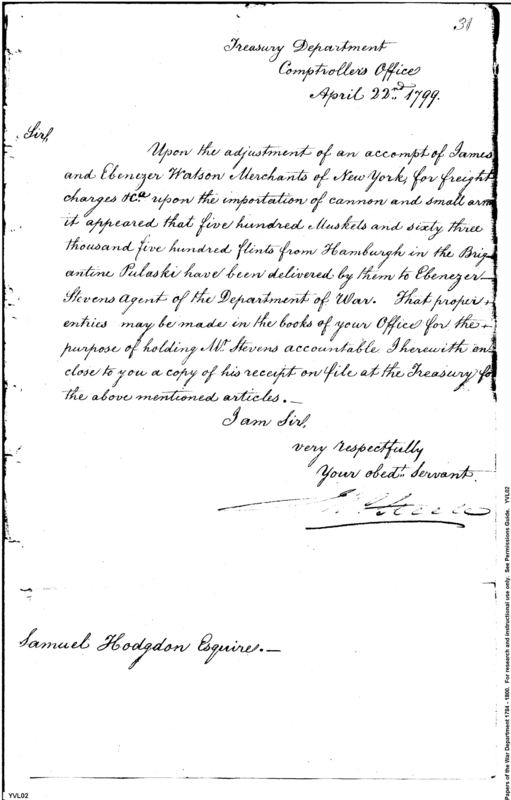 31
Treasury Department
Comptrollers Office
April 22nd 1799.
Sir,
Upon the adjustment of an accompt of James
and Ebenezer Watson Merchants of New York, for freight
charges &ca upon the importation of cannon and small arm
it appeared that five hundred Muskets and sixty three
thousand five hundred flints from Hamburgh in the Brig
antine Pulaski have been delivered by them to Ebenezer
Stevens Agent of the Department of War. That proper
entries may be made in the books of your Office for the
purpose of holding Mr Stevens accountable I herewith en
close to you a copy of his receipt on file at the Treasury fo
the above mentioned articles.—
I am Sir,
very respectfully
Your obedt. Servant.
Jno Steele
Samuel Hodgdon Esquire.—
YVL02
Papers of the War Department 1784 - 1800. For research and instructional use only. See Permissions Guide. YVL02